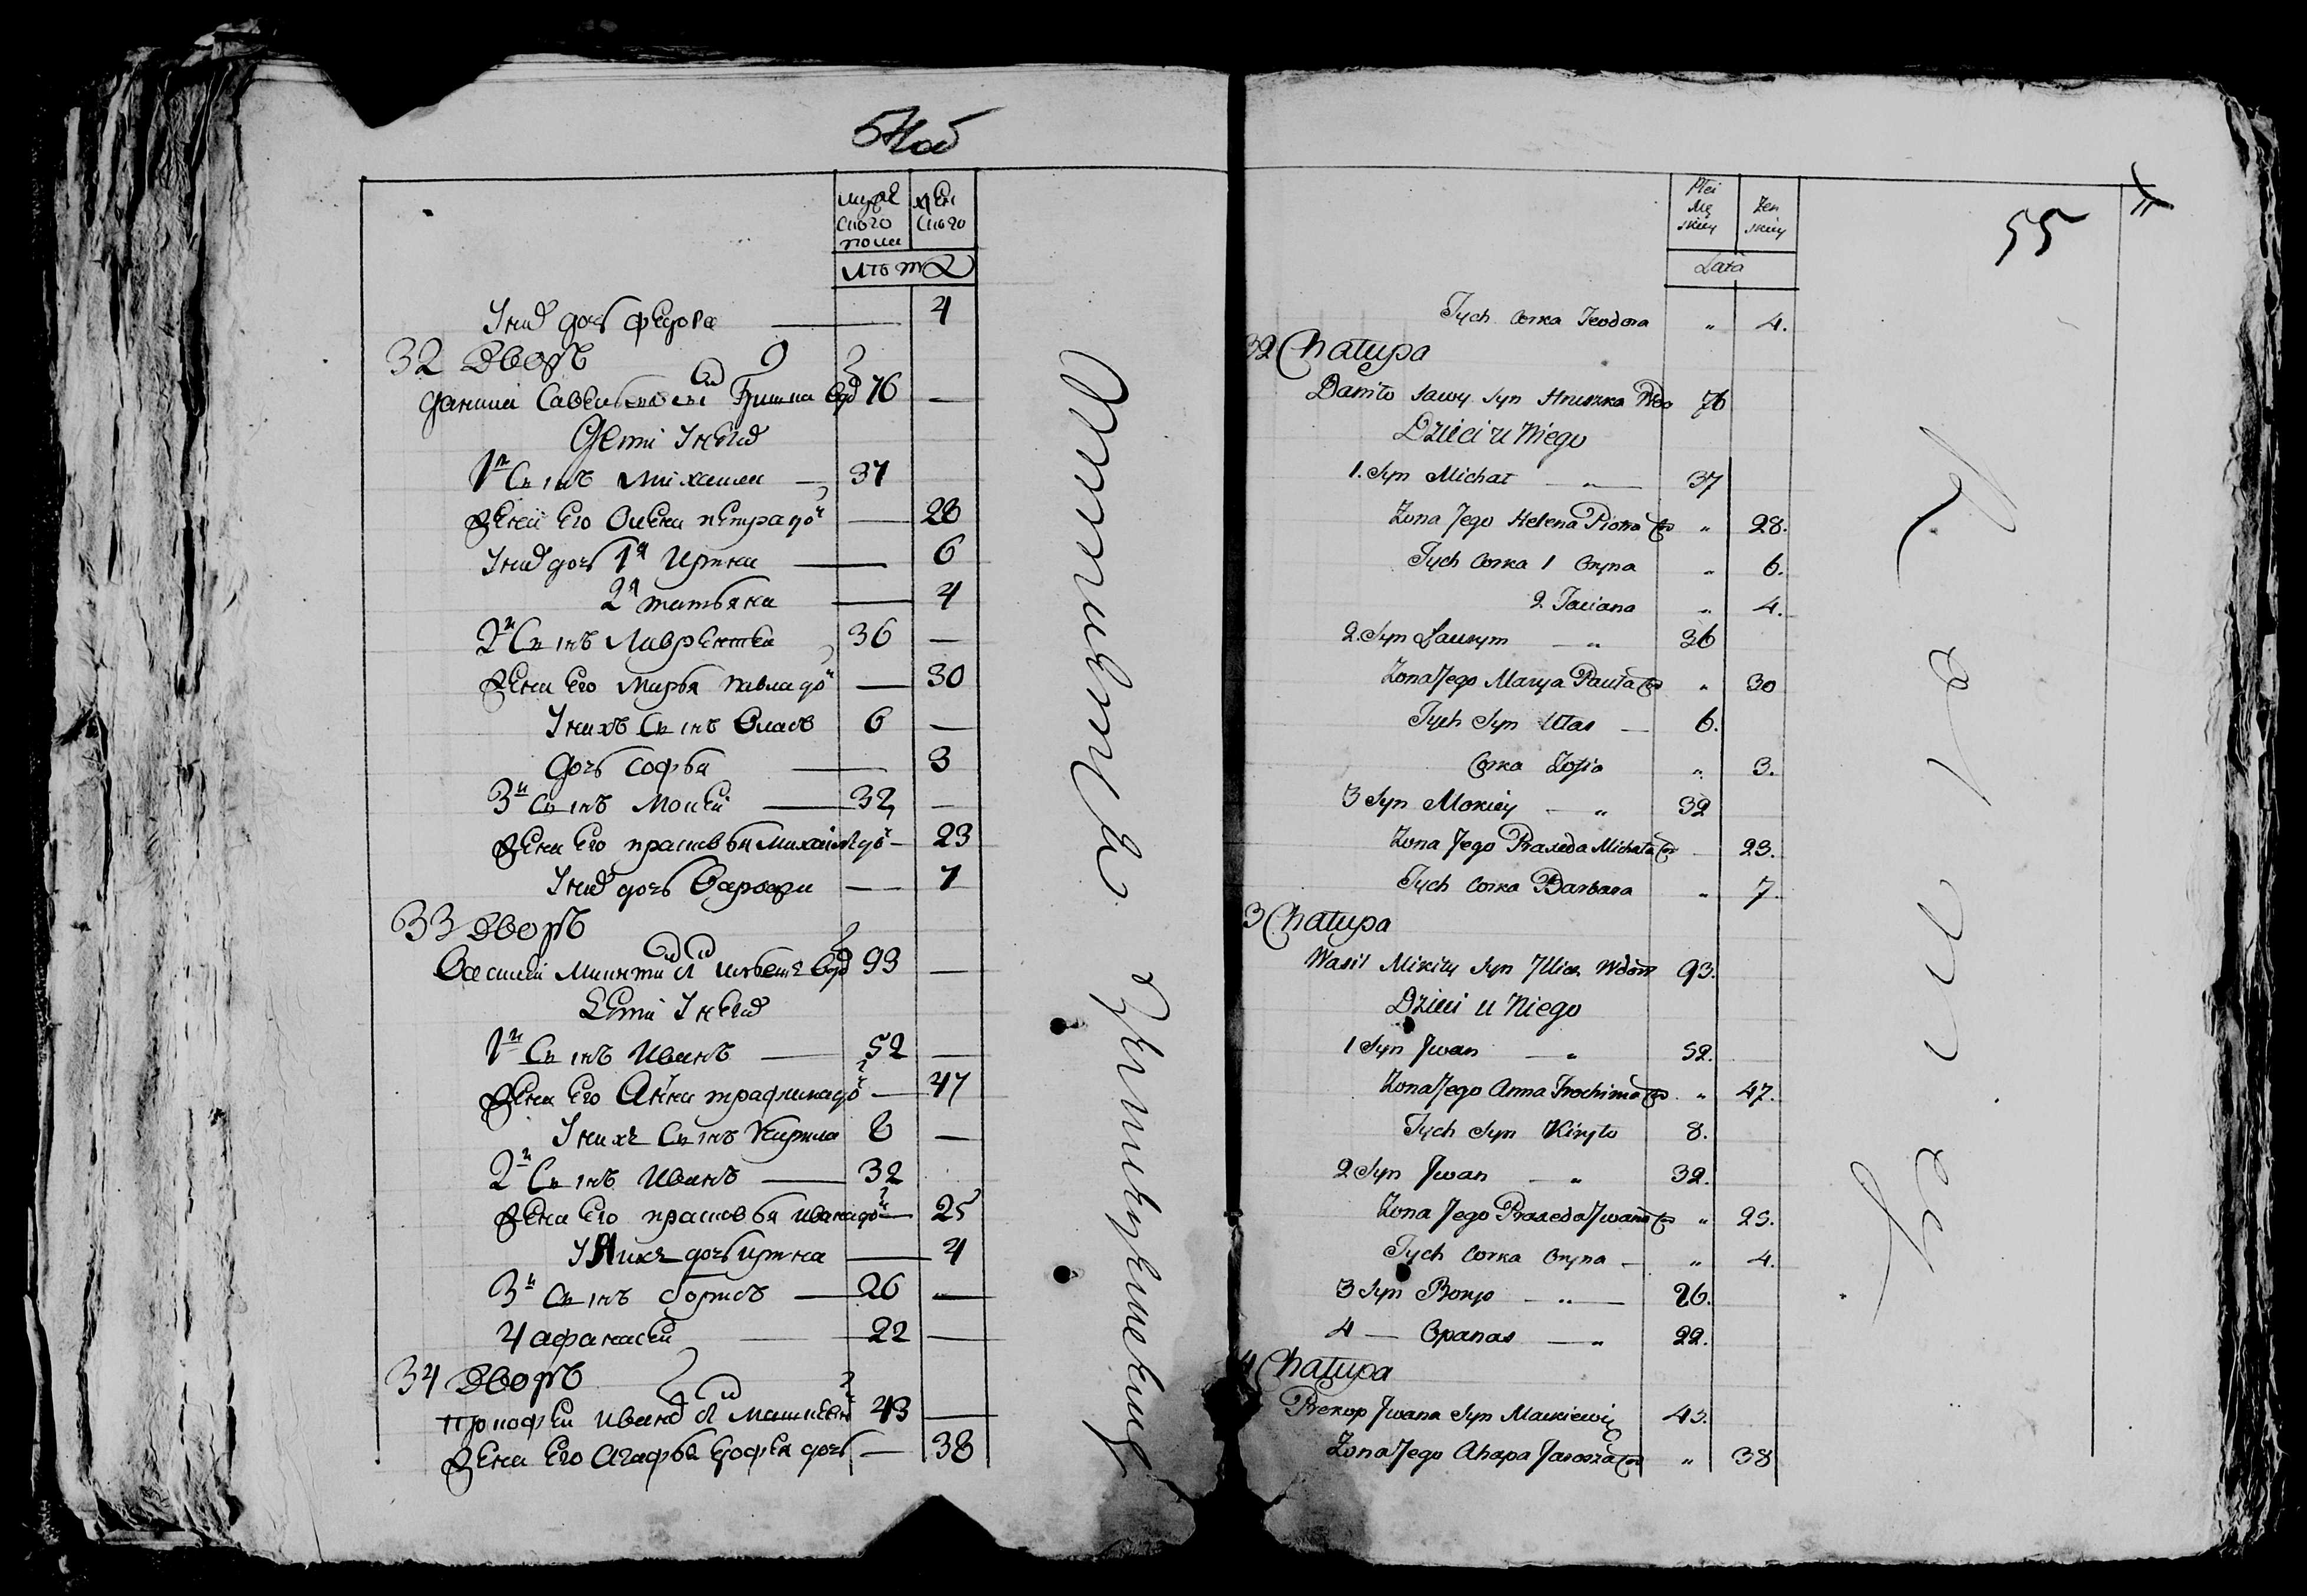 муже ского полу
жен ского
лѣта
У них дочь Федора — 4
32 Дворъ
Данило Саввы сынъ Грушка вд 76 —
Дети У него
1й Сынъ Михаило — 37
Жена Его Олена Петра до — 28
У них дочь 1я Ирина — 6
2я татьяна — 4
2й Сынъ Лаврентей 36 —
Жена Его Марья Павла до — 30
У нихъ Сынъ Власъ 6 —
Дочь Софья — 3
3й Сынъ Мокей — 32 —
Жена Его прасковья Михайла до — 23
У них дочь Варвара — 7
33 Дворъ
Василей Микити вд 93 —
Дети У него
1й Сынъ Иванъ — 52 —
Жена Его Анна трафима до — 47
У нихъ Сынъ Кирила 8 —
2й Сынъ Иванъ — 32
Жена Его прасковья ивана до — 25
У нихъ дочь Ирина — 4
3й Сынъ борисъ — 26 —
4 афанасей — 22 —
34 Дворъ
Прокофей Ивана 43 —
Жена Его Агафья Ерофея дочь — 38
55
Płci Mę skiey
Żen skiey
Lata
Tych Corka Teodora „ 4.
32 Chałupa
Daniło Sawy Syn Hruszka Wdo 76
Dzieci u Niego
1. Syn Michał — „ — 37
Żona Jego Helena Piotra Cor „ 28.
Tych Corka 1 Oryna „ 6.
2 Taciana „ 4.
2. Syn Ławryn — „ 36
Żona Jego Marya Pawła Cor „ 30
Tych Syn Ułas — 6.
Corka Zofia „ 3.
3 Syn Mokiey — „ 32
Żona Jego Praxeda Michała Cor 23.
Tych Corka Barbara „ 7.
3 Chałupa
Wasil Mikity Syn Wdow 93.
Dzieci u Niego
1 Syn Jwan — „ 52.
Żona Jego Anna Trochima Cor „ 47.
Tych Syn Kiryło 8.
2 Syn Jwan — „ 32.
Żona Jego Praxeda Jwana Cor „ 25.
Tych Corka Oryna — „ 4.
3 Syn Borys — „ — 26.
4 — Opanas — „ 22.
4 Chałupa
Prokop Jwana Syn Maskiewicz 43.
Żona Jego Ahapa Jarosza Cor „ 38